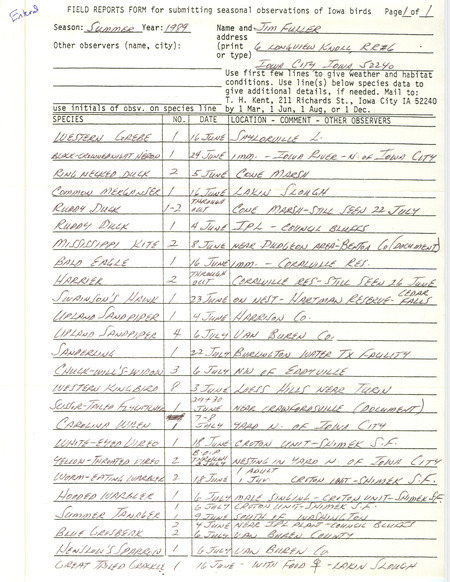 Entered
FIELD REPORTS FORM for submitting seasonal observations of Iowa birds Page 1 of 1
Season: SUMMER Year: 1989 Name and JIM FULLER
address
Other observers (name, city): (print 6 LONGVIEW KNOLL RR#6
or type) IOWA CITY IOWA 52240
Use first few lines to give weather and habitat
conditions. Use line(s) below species data to
give additional details, if needed. Mail to:
T. H. Kent, 211 Richards St., Iowa City IA 52240
use initials of obsv. on species line by 1 Mar, 1 Jun, 1 Aug, or 1 Dec.
SPECIES NO. DATE LOCATION - COMMENT - OTHER OBSERVERS
WESTERN GREBE 1 16 JUNE SAYLORVILLE L.
BLACK-CROWNED NIGHT HERON 1 24 JUNE 1 IMM. - IOWA RIVER - N. OF IOWA CITY
RING NECKED DUCK 2 5 JUNE CONE MARSH
COMMON MERGANSER 1 16 JUNE LAKIN SLOUGH
RUDDY DUCK 1-2 THROUGH OUT CONE MARSH - STILL SEEN 22 JULY
RUDDY DUCK 1 4 JUNE IPL - COUNCIL BLUFFS
MISSISSIPPI KITE 2 8 JUNE NEAR DUDGEON AREA - BENTON CO (DOCUMENT)
BALD EAGLE 1 16 JUNE IMM. - CORALVILLE RES.
HARRIER 2 THROUGH OUT CORALVILLE RES - STILL SEEN 26 JUNE
SWAINSON'S HAWK 1 23 JUNE ON NEST - HARTMAN RESERVE - CEDAR FALLS
UPLAND SANDPIPER 1 4 JUNE HARRISON CO.
UPLAND SANDPIPER 4 6 JULY VAN BUREN CO.
SANDERLING 1 22 JULY BURLINGTON WATER TX FACILITY
CHUCK-WILL'S-WIDOW 3 6 JULY NW OF EDDYVILLE
WESTERN KINGBIRD 8 3 JUNE LOESS HILLS NEAR TURIN
SCISSOR-TAILED FLYCATCHER 1 29+30 JUNE NEAR CRAWFORDSVILLE (DOCUMENT)
CAROLINA WREN 1 7-8 JULY YARD N. OF IOWA CITY
WHITE-EYED VIREO 1 18 JUNE CROTON UNIT - SHIMEK S.F.
YELLOW-THROATED VIREO 2 THROUGH JULY NESTING IN YARD N. OF IOWA CITY
WORM-EATING WARBLER 2 18 JUNE 1 ADULT 1 JUV. CROTON UNIT - SHIMEK S.F.
HOODED WARBLER 1 6 JULY MALE SINGING - CROTON UNIT - SHIMEK S.F.
SUMMER TANAGER 1 6 JULY CROTON UNIT - SHIMEK S.F.
1 9 JUNE SOUTH OF WASHINGTON
BLUE GROSBEAK 2 4 JUNE NEAR IPL PLANT - COUNCIL BLUFFS
2 6 JULY VAN BUREN COUNTY
HENSLOW'S SPARROW 1 6 JULY VAN BUREN CO.
GREAT TAILED GRACKLE 1 16 JUNE - WITH FOOD ♀ - LAKIN SLOUGH